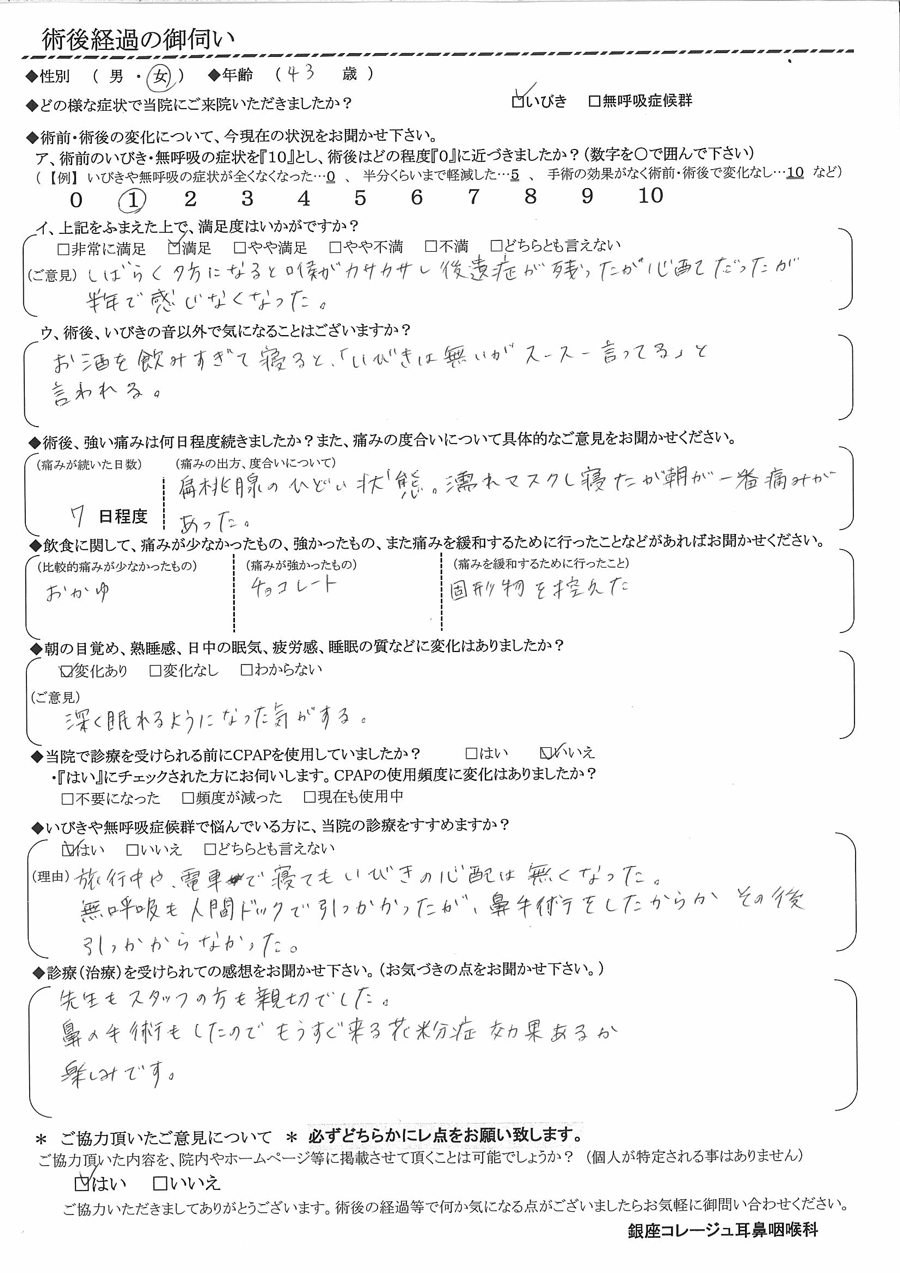 術後経過の御伺い
◆性別 （ 男 ・ 女 ） ◆年齢 （ 43 歳 ）
◆どの様な症状で当院にご来院いただきましたか？ ☑いびき □無呼吸症候群
◆術前・術後の変化について、今現在の状況をお聞かせ下さい。
ア、術前のいびき・無呼吸の症状を『10』とし、術後はどの程度『0』に近づきましたか？（数字を○で囲んで下さい）
（【例】 いびきや無呼吸の症状が全くなくなった…0 、 半分くらいまで軽減した…5 、 手術の効果がなく術前・術後で変化なし…10 など）
0 1 2 3 4 5 6 7 8 9 10
イ、上記をふまえた上で、満足度はいかがですか？
□非常に満足 ☑満足 □やや満足 □やや不満 □不満 □どちらとも言えない
（ご意見） しばらく夕方になると喉がカサカサし後遺症が残ったか心配でだったが
半年で感じなくなった。
ウ、術後、いびきの音以外で気になることはございますか？
お酒を飲みすぎて寝ると、「いびきは無いがスースー言ってる」と
言われる。
◆術後、強い痛みは何日程度続きましたか？また、痛みの度合いについて具体的なご意見をお聞かせください。
（痛みが続いた日数） （痛みの出方、度合いについて）
扁桃腺のひどい状態。濡れマスクし寝たが朝が一番痛みが
7 日程度 あった。
◆飲食に関して、痛みが少なかったもの、強かったもの、また痛みを緩和するために行ったことなどがあればお聞かせください。
（比較的痛みが少なかったもの） （痛みが強かったもの） （痛みを緩和するために行ったこと）
おかゆ チョコレート 固形物を控えた
◆朝の目覚め、熟睡感、日中の眠気、疲労感、睡眠の質などに変化はありましたか？
☑変化あり □変化なし □わからない
（ご意見）
深く眠れるようになった気がする。
◆当院で診療を受けられる前にCPAPを使用していましたか？ □はい ☑いいえ
・『はい』にチェックされた方にお伺いします。CPAPの使用頻度に変化はありましたか？
□不要になった □頻度が減った □現在も使用中
◆いびきや無呼吸症候群で悩んでいる方に、当院の診療をすすめますか？
☑はい □いいえ □どちらとも言えない
（理由） 旅行中や、電車で寝てもいびきの心配は無くなった。
無呼吸も人間ドックで引っかかったが、鼻手術をしたからか その後
引っかからなかった。
◆診療（治療）を受けられての感想をお聞かせ下さい。（お気づきの点をお聞かせ下さい。）
先生もスタッフの方も親切でした。
鼻の手術もしたのでもうすぐ来る花粉症 効果あるか
楽しみです。
＊ ご協力頂いたご意見について ＊ 必ずどちらかにレ点をお願い致します。
ご協力頂いた内容を、院内やホームページ等に掲載させて頂くことは可能でしょうか？（個人が特定される事はありません）
☑はい □いいえ
ご協力いただきましてありがとうございます。術後の経過等で何か気になる点がございましたらお気軽に御問い合わせください。
銀座コレージュ耳鼻咽喉科